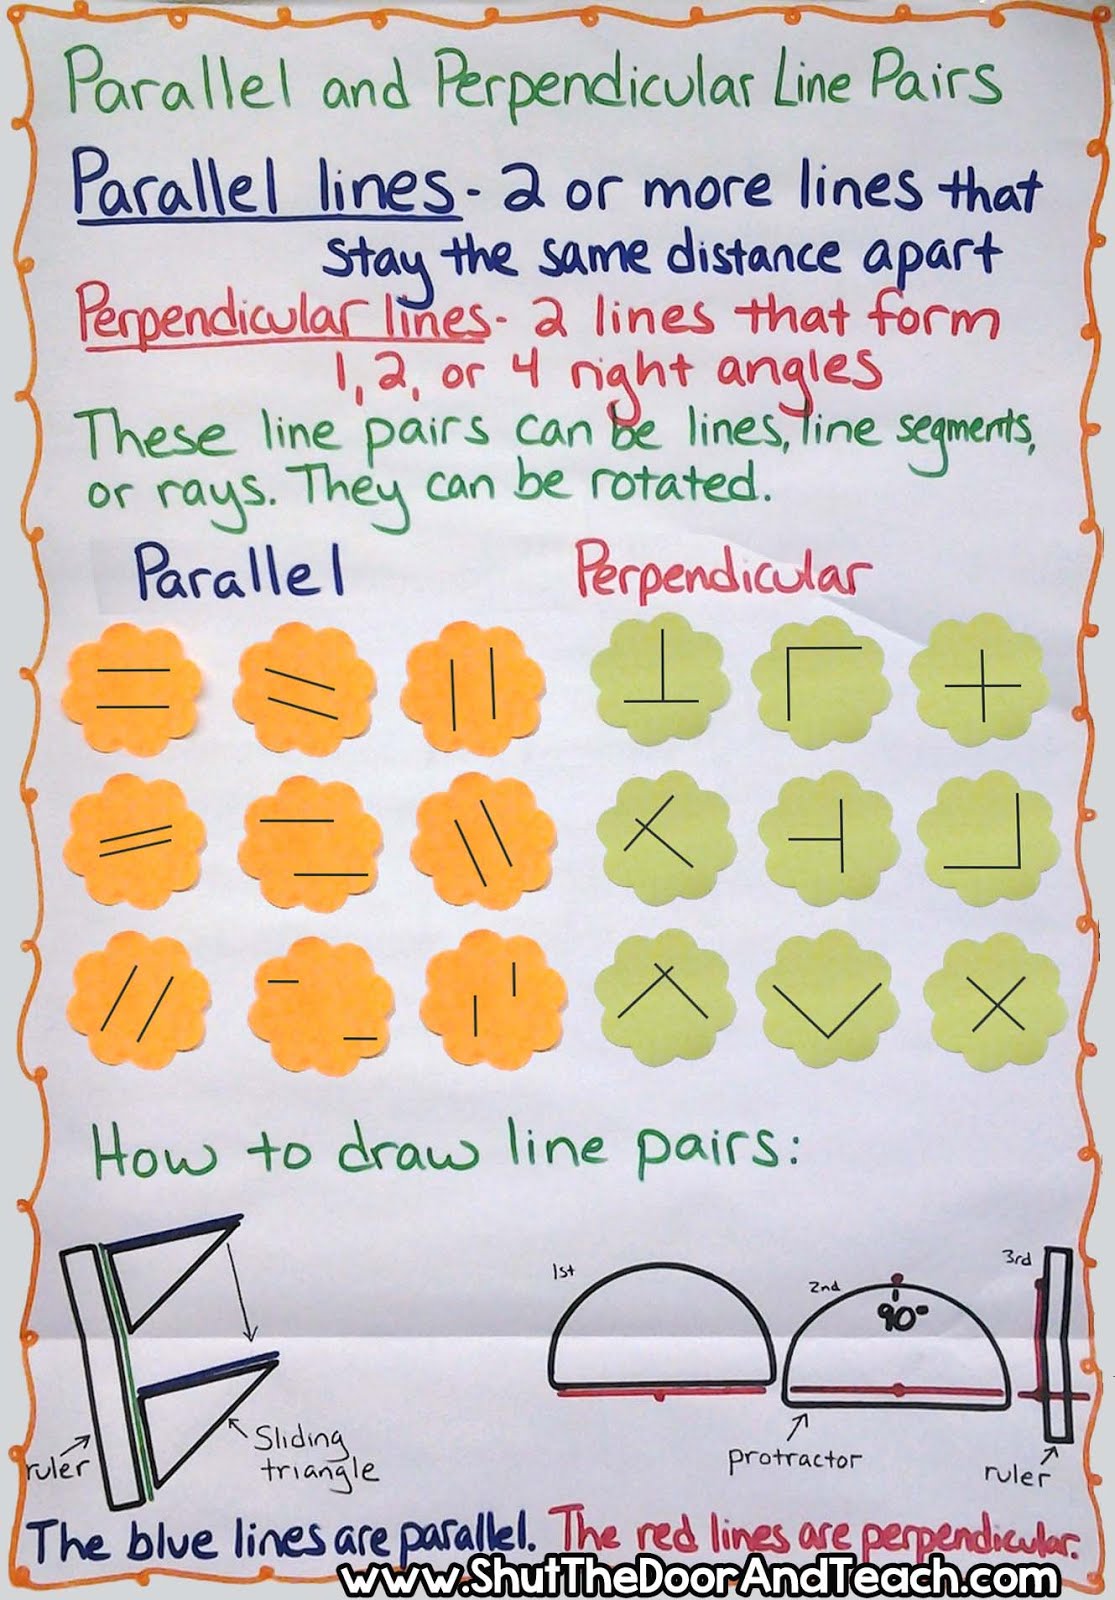 Parallel and Perpendicular Line Pairs
Parallel lines - 2 or more lines that
stay the same distance apart
Perpendicular lines - 2 lines that form
1, 2, or 4 right angles
These line pairs can be lines, line segments,
or rays. They can be rotated.
Parallel
Perpendicular
How to draw line pairs:
ruler
Sliding
triangle
1st
2nd
90°
protractor
3rd
ruler
The blue lines are parallel. The red lines are perpendicular.
www.ShutTheDoorAndTeach.com